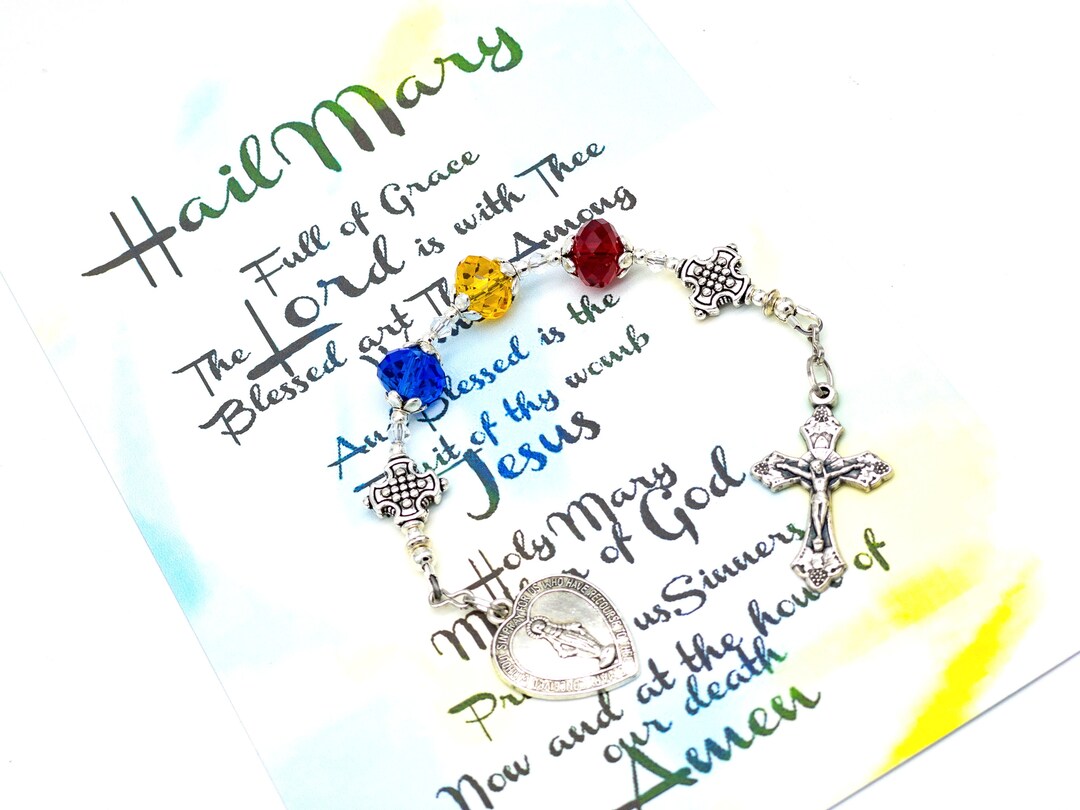 Hail Mary
Full of Grace
The Lord is with Thee
Blessed art Among
Blessed is the
of thy womb
Jesus
Holy Mary
of God
us Sinners
Now and at the hour of
our death
Amen
FOR US WHO HAVE RECOURSE TO